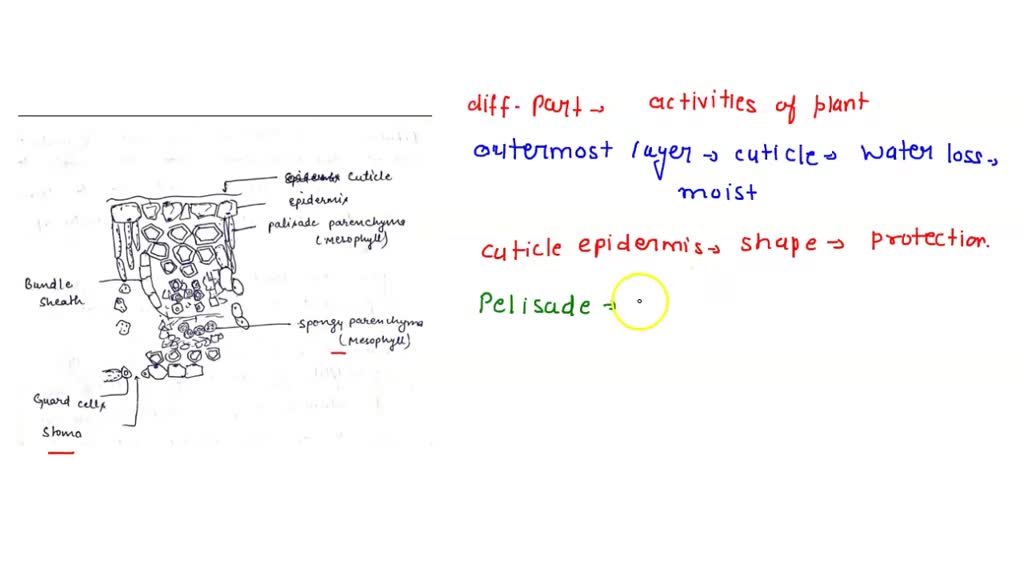 diff. part → activities of plant
outermost layer → cuticle → water loss →
moist
cuticle epidermis → shape → protection.
Pelisade →
epidermis cuticle
epidermis
palisade parenchyma
(Mesophyll)
Bundle
sheath
spongy parenchyma
(Mesophyll)
Guard cells
Stoma